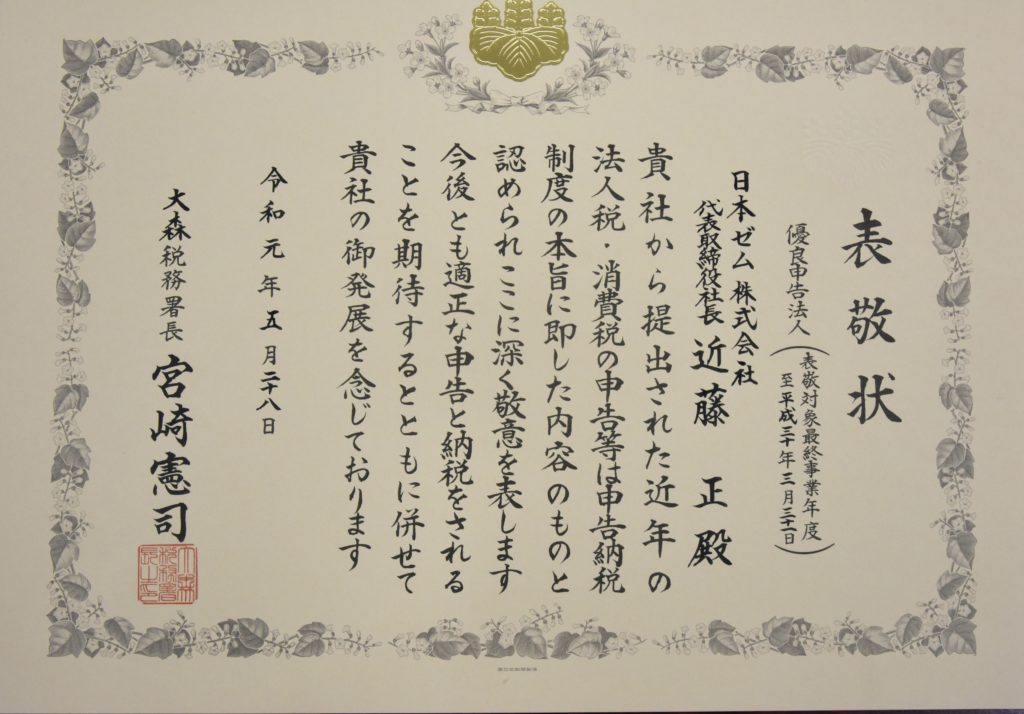 表敬状
優良申告法人
(表敬対象最終事業年度
至平成三十年三月三十一日)
日本ゼム株式会社
代表取締役社長 近藤 正 殿
貴社から提出された近年の
法人税・消費税の申告等は申告納税
制度の本旨に即した内容のものと
認められここに深く敬意を表します
今後とも適正な申告と納税をされる
ことを期待するとともに併せて
貴社の御発展を念じております
令和元年五月二十八日
大森税務署長 宮崎憲司
大森
税務署
長之印